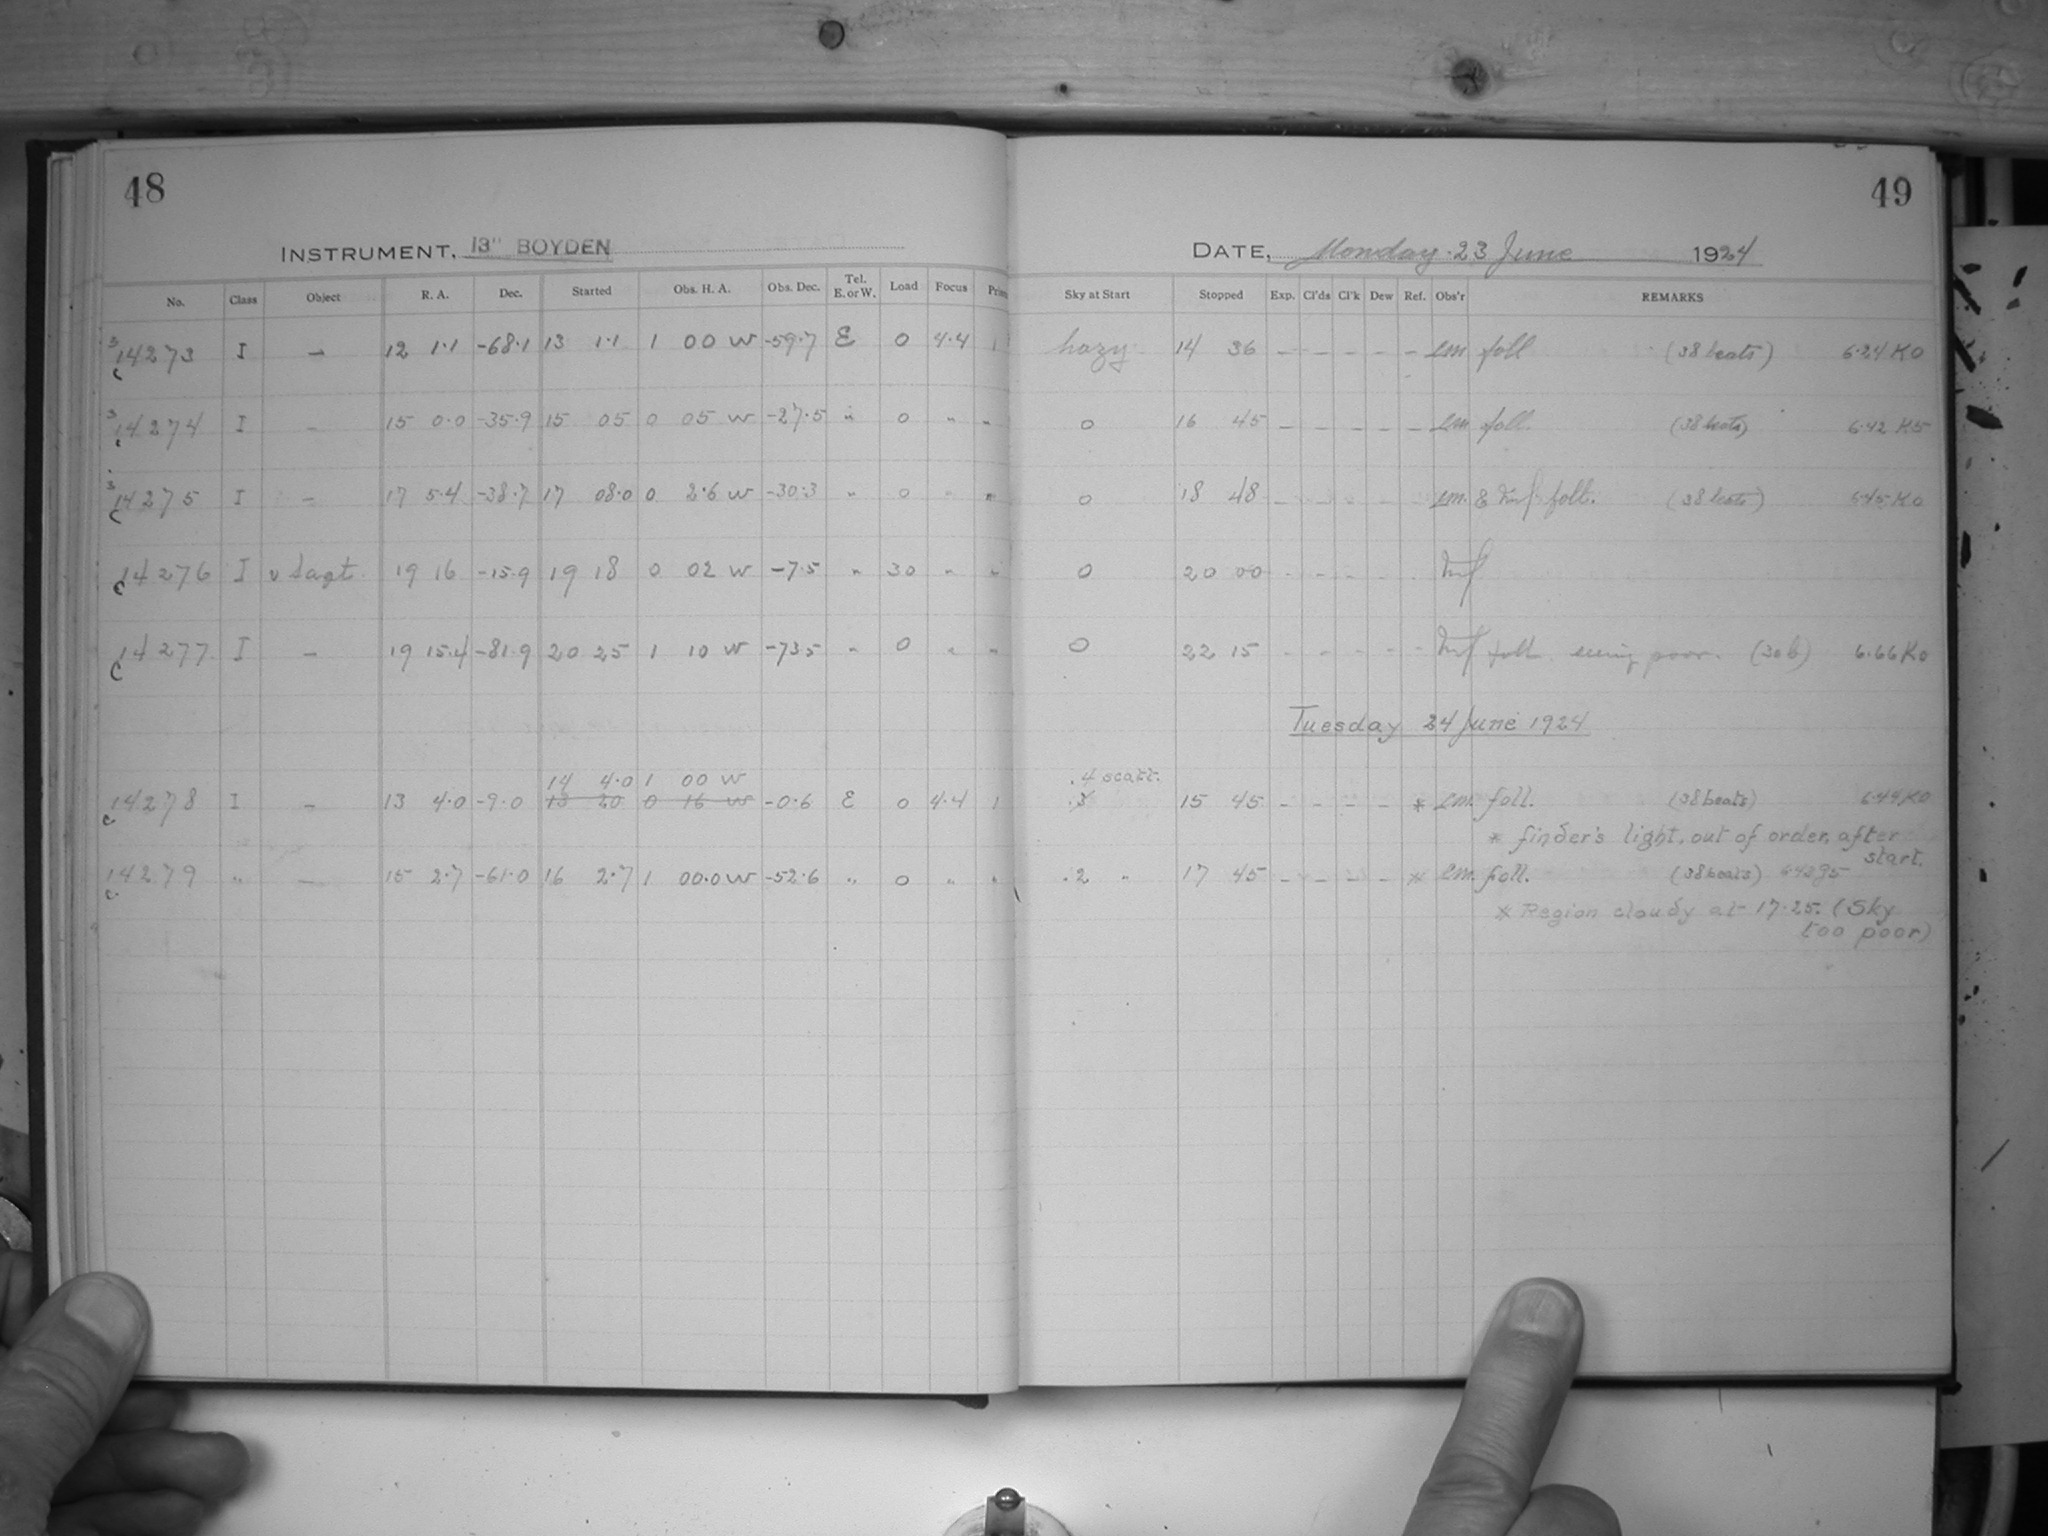 48
INSTRUMENT, 13" BOYDEN
No. Class Object R. A. Dec. Started Obs. H. A. Obs. Dec. Tel. E. or W. Load Focus
14273 I – 12 1.1 -68.1 13 1.1 1 00 W -59.7 E 0 4.4 1
14274 I – 15 0.0 -35.9 15 05 0 05 W -27.5 " 0 " "
14275 I – 17 5.4 -38.7 17 08.0 0 2.6 W -30.3 " 0 " "
14276 I υ Sagt. 19 16 -15.9 19 18 0 02 W -7.5 " 30 " "
14277 I – 19 15.4 -81.9 20 25 1 10 W -73.5 " 0 " "
14 4.0 1 00 W
14278 I – 13 4.0 -9.0 13 20 0 16 W -0.6 E 0 4.4 1
14279 " – 15 2.7 -61.0 16 2.7 1 00.0 W -52.6 " 0 " "
49
DATE, Monday. 23 June 1924
Sky at Start Stopped Exp. Cl'ds Cl'k Dew Ref. Obs'r REMARKS
hazy 14 36 – – – – – LM foll (38 beats) 6.24 K0
0 16 45 – – – – – LM foll. (38 beats) 6.42 K5
0 18 48 – – – – LM. & foll. (38 beats) 6.45 K0
0 20 00 – – – –
0 22 15 – – – – – foll. seeing poor. (30 b) 6.66 K0
Tuesday 24 June 1924
.4 scatt.
.3 15 45 – – – – * LM. foll. (38 beats) 6.49 K0
* finder's light, out of order, after
start.
.2 " 17 45 – – – – * LM. foll. (38 beats)
* Region cloudy at 17.25. (Sky
too poor)